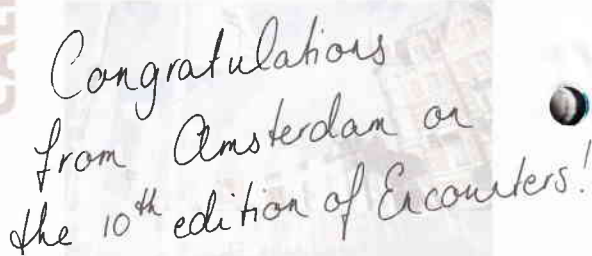 Congratulations
from Amsterdam on
the 10th edition of Encounters!